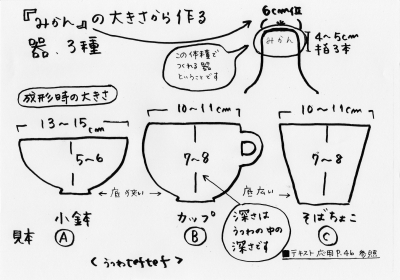 『みかん』の大きさから作る
器. 3種
6cm位
みかん
4〜5cm
指3本
この体積で
つくれる器
ということです
成形時の大きさ
13〜15cm
10〜11cm
10〜11cm
5〜6
7〜8
7〜8
底が狭い
底広い
深さは
うつわの中の
深さです
見本
小鉢
カップ
そばちょこ
A
B
C
■テキスト応用P.46 参照